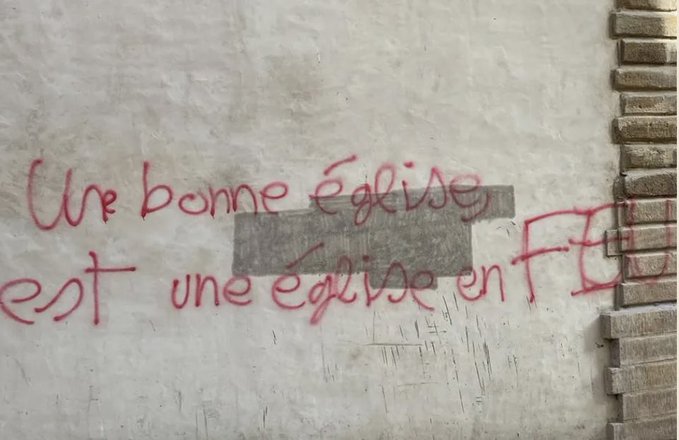 Une bonne église,
est une église en FEU